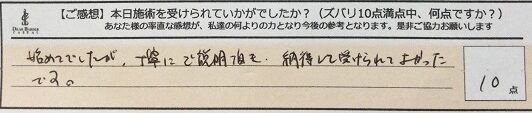 【ご感想】本日施術を受けられていかがでしたか?(ズバリ10点満点中、何点ですか?)
あなた様の率直な感想が、私達の何よりの力となり今後の参考となります。是非ご協力お願いします
始めてでしたが、丁寧にご説明頂き、納得して受けられてよかった
です。
10点